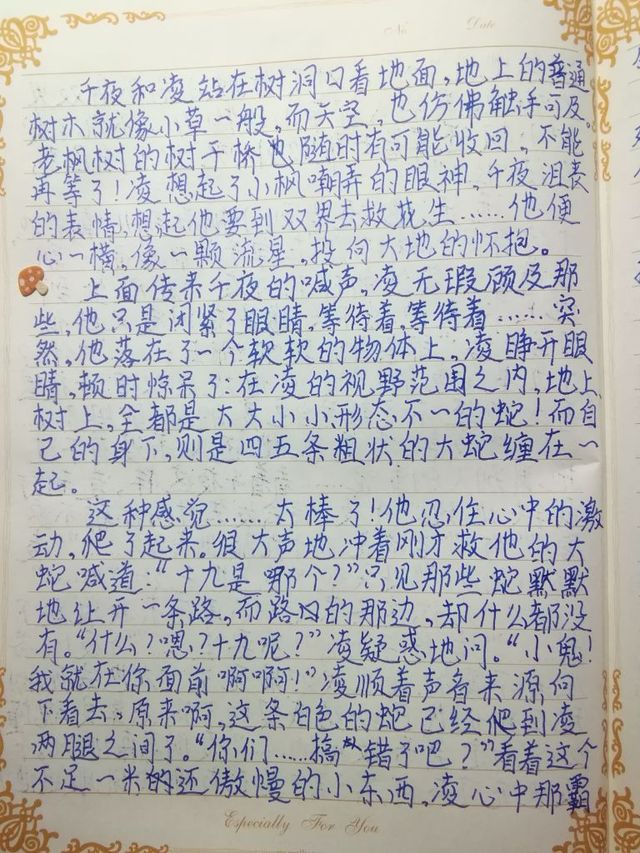 No
Date
千夜和凌站在树洞口看地面,地上的普通
树木就像小草一般,而天空,也仿佛触手可及。
老枫树的树干桥也随时有可能收回,不能
再等了!凌想起了小枫嘲弄的眼神,千夜沮丧
的表情,想起他要到双界去救花生……他便
心一横,像一颗流星,投向大地的怀抱。
上面传来千夜的喊声,凌无瑕顾及那
些,他只是闭紧了眼睛,等待着,等待着……突
然,他落在了一个软软的物体上,凌睁开眼
睛,顿时惊呆了:在凌的视野范围之内,地上
树上,全都是大大小小形态不一的蛇!而自
己的身下,则是四五条粗状的大蛇缠在一
起。
这种感觉……太棒了!他忍住心中的激
动,爬了起来。很大声地冲着刚才救他的大
蛇喊道:“十九是哪个?”只见那些蛇默默
地让开一条路,而路的那边,却什么都没
有。“什么?嗯?十九呢?”凌疑惑地问。“小鬼!
我就在你面前啊啊!”凌顺着声音来源向
下看去,原来啊,这条白色的蛇已经爬到凌
两腿之间了。“你们……搞错了吧?”看着这个
不足一米的还傲慢的小东西,凌心中那霸
Especially For You